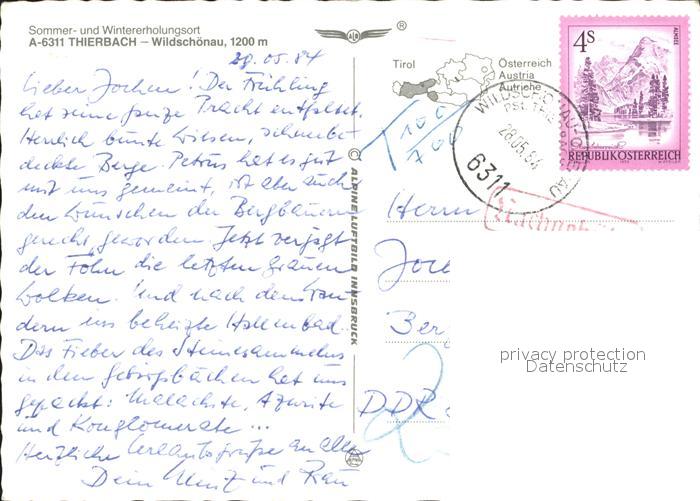 Sommer- und Wintererholungsort
A-6311 THIERBACH – Wildschönau, 1200 m
28.05.84
Lieber Jochen! Der Frühling
hat seine ganze Pracht entfaltet.
Herrlich bunte Wiesen, schneebe-
deckte Berge. Petrus hat es gut
mit uns gemeint, ist aber auch
den Wünschen der Bergbauern
gerecht geworden. Jetzt verjagt
der Föhn die letzten grauen
Wolken. Und nach dem Wan-
dern ins beheizte Hallenbad.
Das Fieber des Steinesammelns
in den Gebirgsbächen hat uns
gepackt: Malachite, Azurite
und Konglomerate ...
Herzliche Urlaubsgrüße an alle
Dein und Frau
®
Tirol
Österreich
Austria
Autriche
ALPINE LUFTBILD INNSBRUCK
T 100
700
WILDSCHÖNAU
28.05.84
6311
4S
ALMSEE
REPUBLIK ÖSTERREICH
Herrn
Joc
Ber
DDR
2
privacy protection
Datenschutz